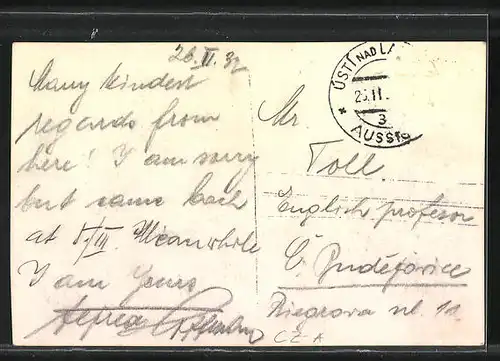 26.II.32
Many kindest
regards from
here! I am sorry
but came back
at 1/III. Meanwhile
I am Yours
ÚSTÍ NAD LA
26.II.
3
AUSSIG
Mr.
Toll.
English profesor
Č. Budějovice
Riegrova ul. 11
CZ-A